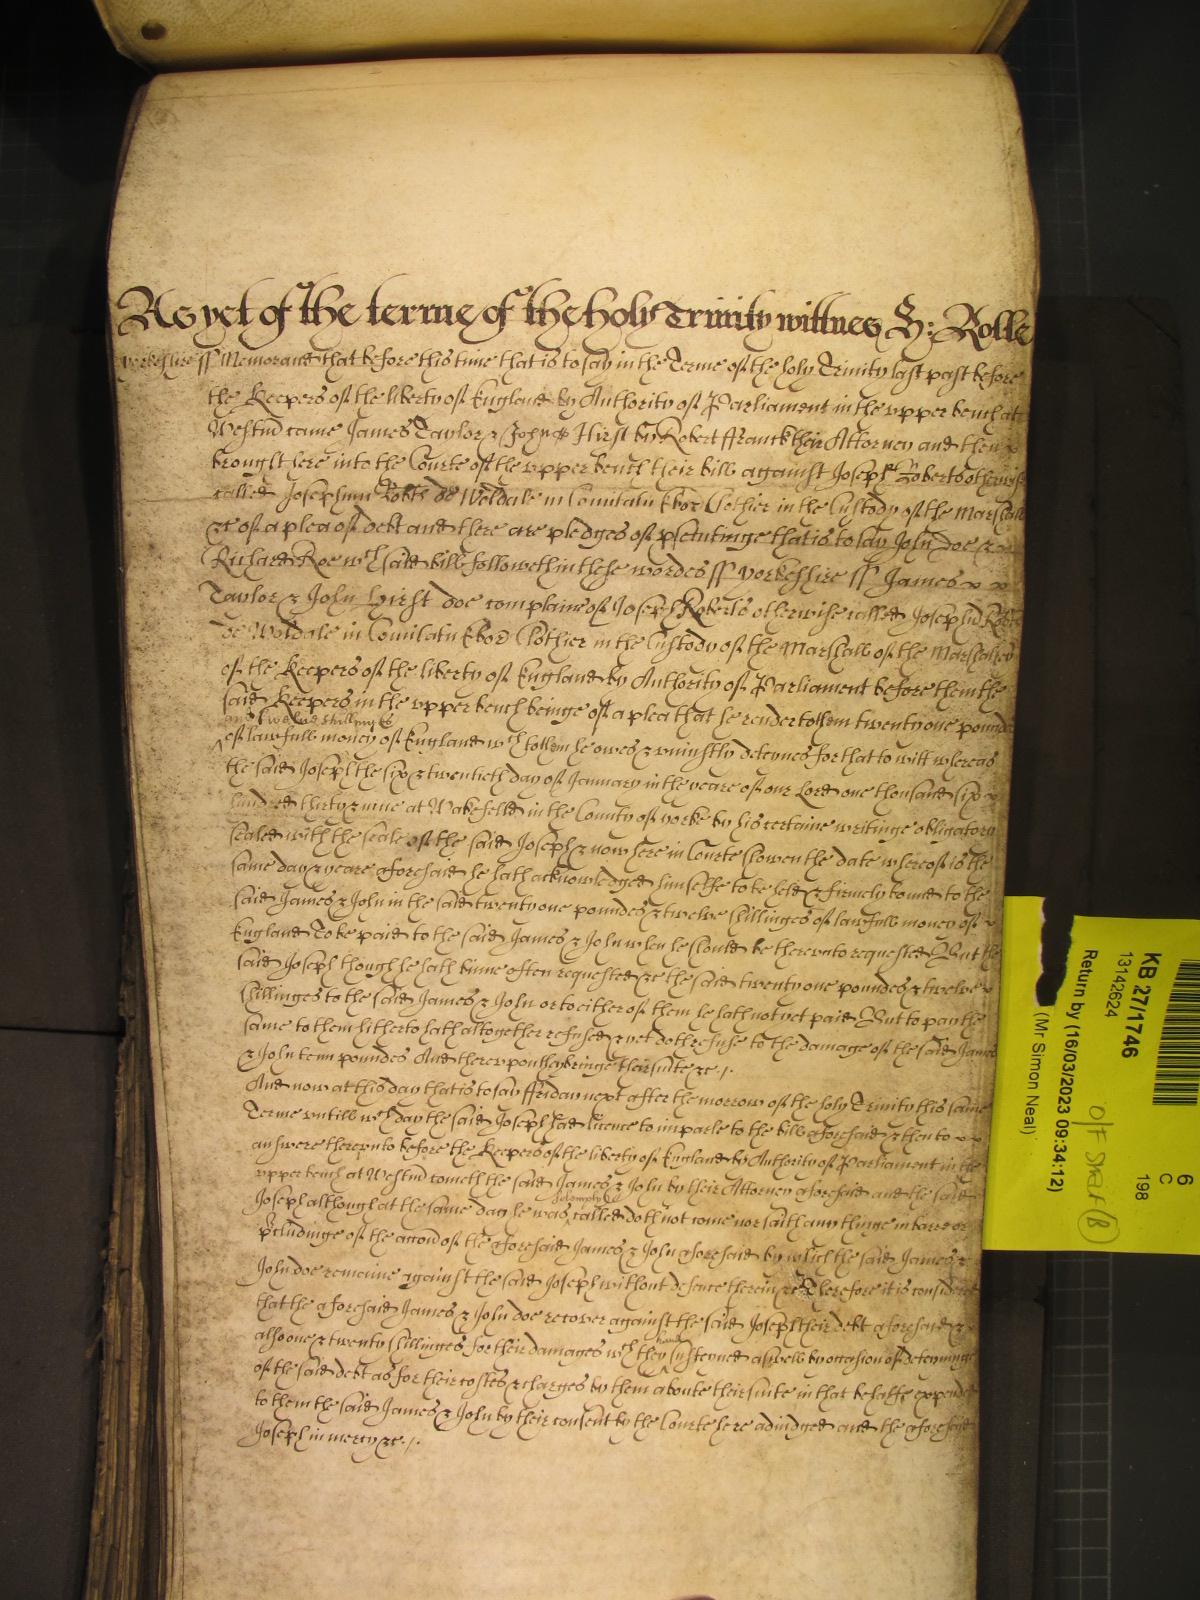 As yet of the terme of the holy Trinity wittnes H: Rolle
yorkeshire ss Memorand that before this time that is to say in the Terme of the holy Trinity last past before
the Keepers of the liberty of England by Authority of Parliament in the vpper bench at
Westm came James Taylor & John Hirst by Robert ffranck their Attorney and then
brought here into the Courte of the vpper bench their bill against Joseph Roberts otherwise
called Josephum Robts de in Comitatu Ebor Clothier in the Custody of the Marshall
&c of a plea of debt and there are pledges of psecutinge that is to say John Doe &
Richard Roe wch said bill followeth in these wordes ss yorkeshire ss James
Taylor & John Hirst doe complaine of Joseph Roberts otherwise called Josephu Robts
de in Comitatu Ebor Clothier in the Custody of the Marshall of the Marshalsey
of the Keepers of the liberty of England by Authority of Parliament before them the
said Keepers in the vpper bench beinge of a plea that he render to them twenty one pounds
and twelve shillinges
of lawfull money of England wch to them he owes & vniustly deteynes for that to witt whereas
the said Joseph the six & twentieth day of January in the yeare of our Lord one thousand six
hundred thirty & nine at Wakefeild in the County of yorke by his certaine writinge obligatory
sealed with the seale of the said Joseph & now here in Courte shewen the date whereof is the
same day & yeare aforesaid he hath acknowledged himselfe to be held & firmely bound to the
said James & John in the said twenty one poundes & twelve shillinges of lawfull money of
England To be paid to the said James & John when he should be therevnto requested But the
said Joseph though he hath binne often requested &c the said twenty one poundes & twelve
shillinges to the said James & John or to either of them he hath not yet paid But to pay the
same to them hitherto hath altogether refused & yet doth refuse to the damage of the said James
& John tenn poundes And therevpon they bringe their suite &c
And now at this day that is to say ffriday next after the morrow of the holy Trinity this same
Terme vntill wch day the said Joseph had licence to imparle to the bill aforesaid & then to
answere therevnto before the Keepers of the liberty of England by Authority of Parliament in the
vpper bench at Westm cometh the said James & John by their Attorney aforesaid and the said
solemply
Joseph although at the same day he was called doth not come nor saith any thinge in barre or
pcludinge of the accon of the aforesaid James & John aforesaid by which the said James &
John doe remaine against the said Joseph without defence therein &c Therefore it is considered
that the aforesaid James & John doe recover against the said Joseph their debt aforesaid &
have
also one & twenty shillinges for their damages wch they susteyned aswell by occasion of deteyninge
of the said debt as for their costes & charges by them aboute their suite in that behalfe expended
to them the said James & John by their consent by the Courte here adiudged and the aforesaid
Joseph in mercy &c
KB 27/1746
13142624
Return by (16/03/2023 09:34:12)
(Mr Simon Neal)
6
C
198